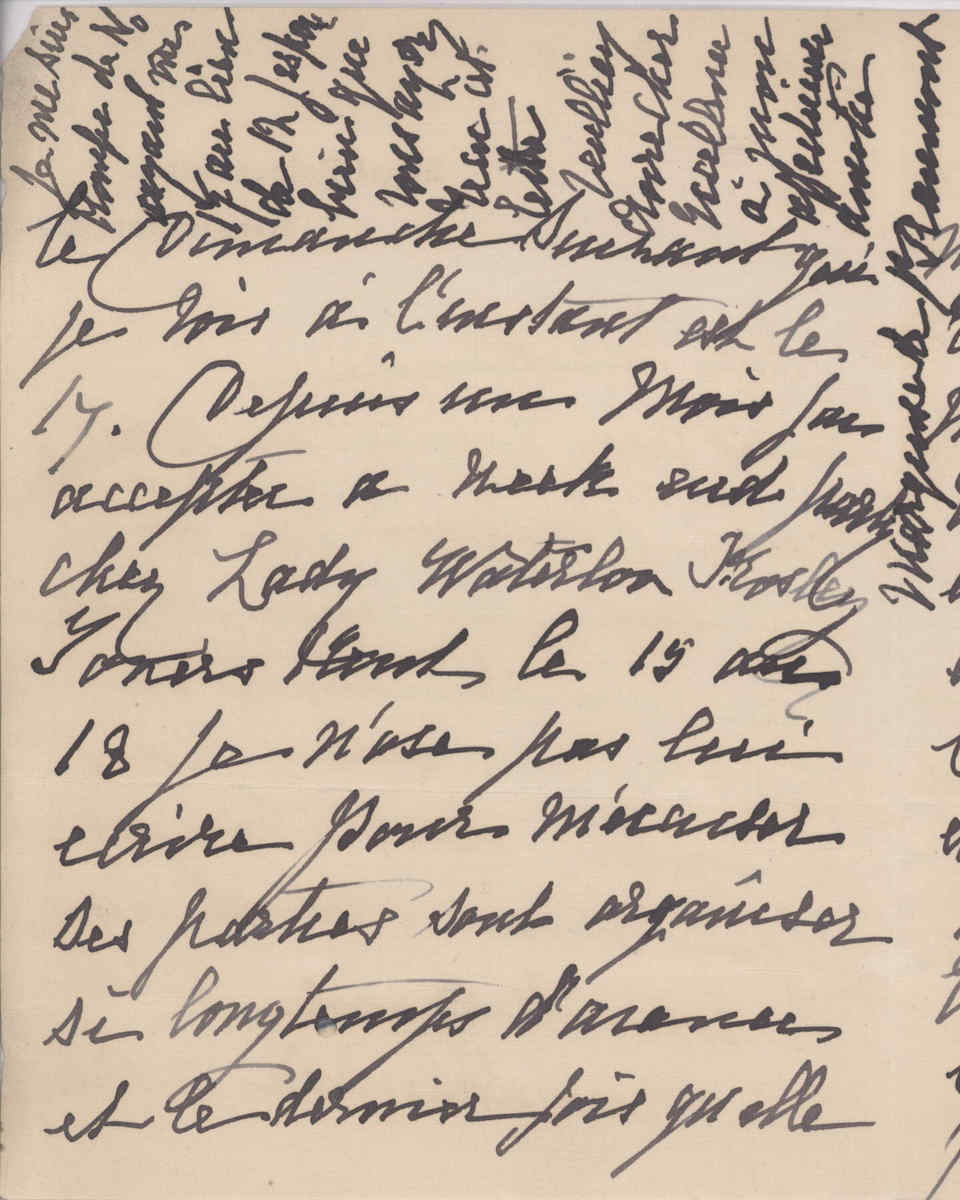 le Dimanche Suivant qui
je vois à l'instant est le
17. Depuis un Mois j'ai
accepter a week end party
chez Lady Waterloo
le 15 au
18 je n'ose pas lui
ecrire pour m'écuser
ses parties sont organiser
si longtemps d'avance
et le dernier fois qu'elle
Je me suis
trompé de No
ayant mis
de 12 j'espère
bien que
vous ayez
reçu cette
lettre
Veuillez
Excellence
à mon
affectueuse
amitié